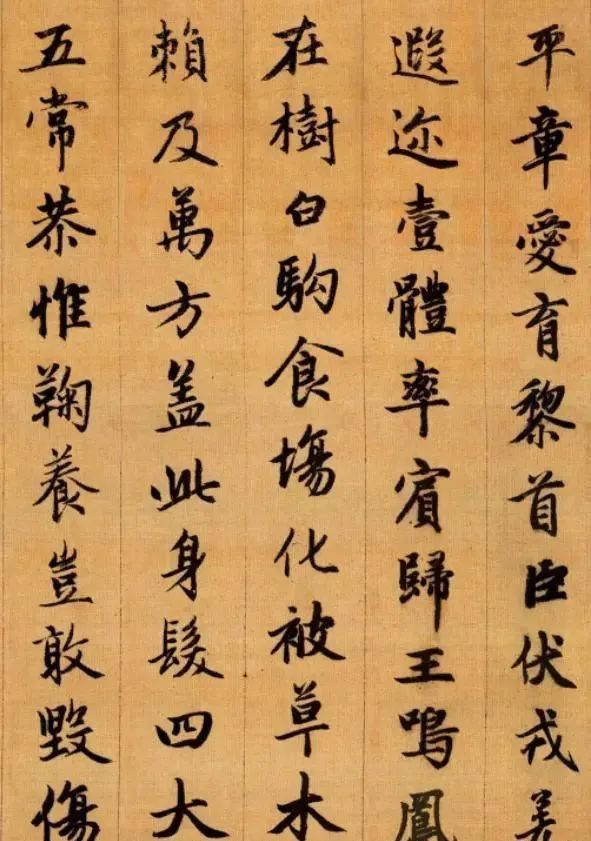 平章愛育黎首臣伏戎羌
遐迩壹體率賓歸王鳴鳳
在樹白駒食塲化被草木
賴及萬方盖此身髮四大
五常恭惟鞠養豈敢毀傷